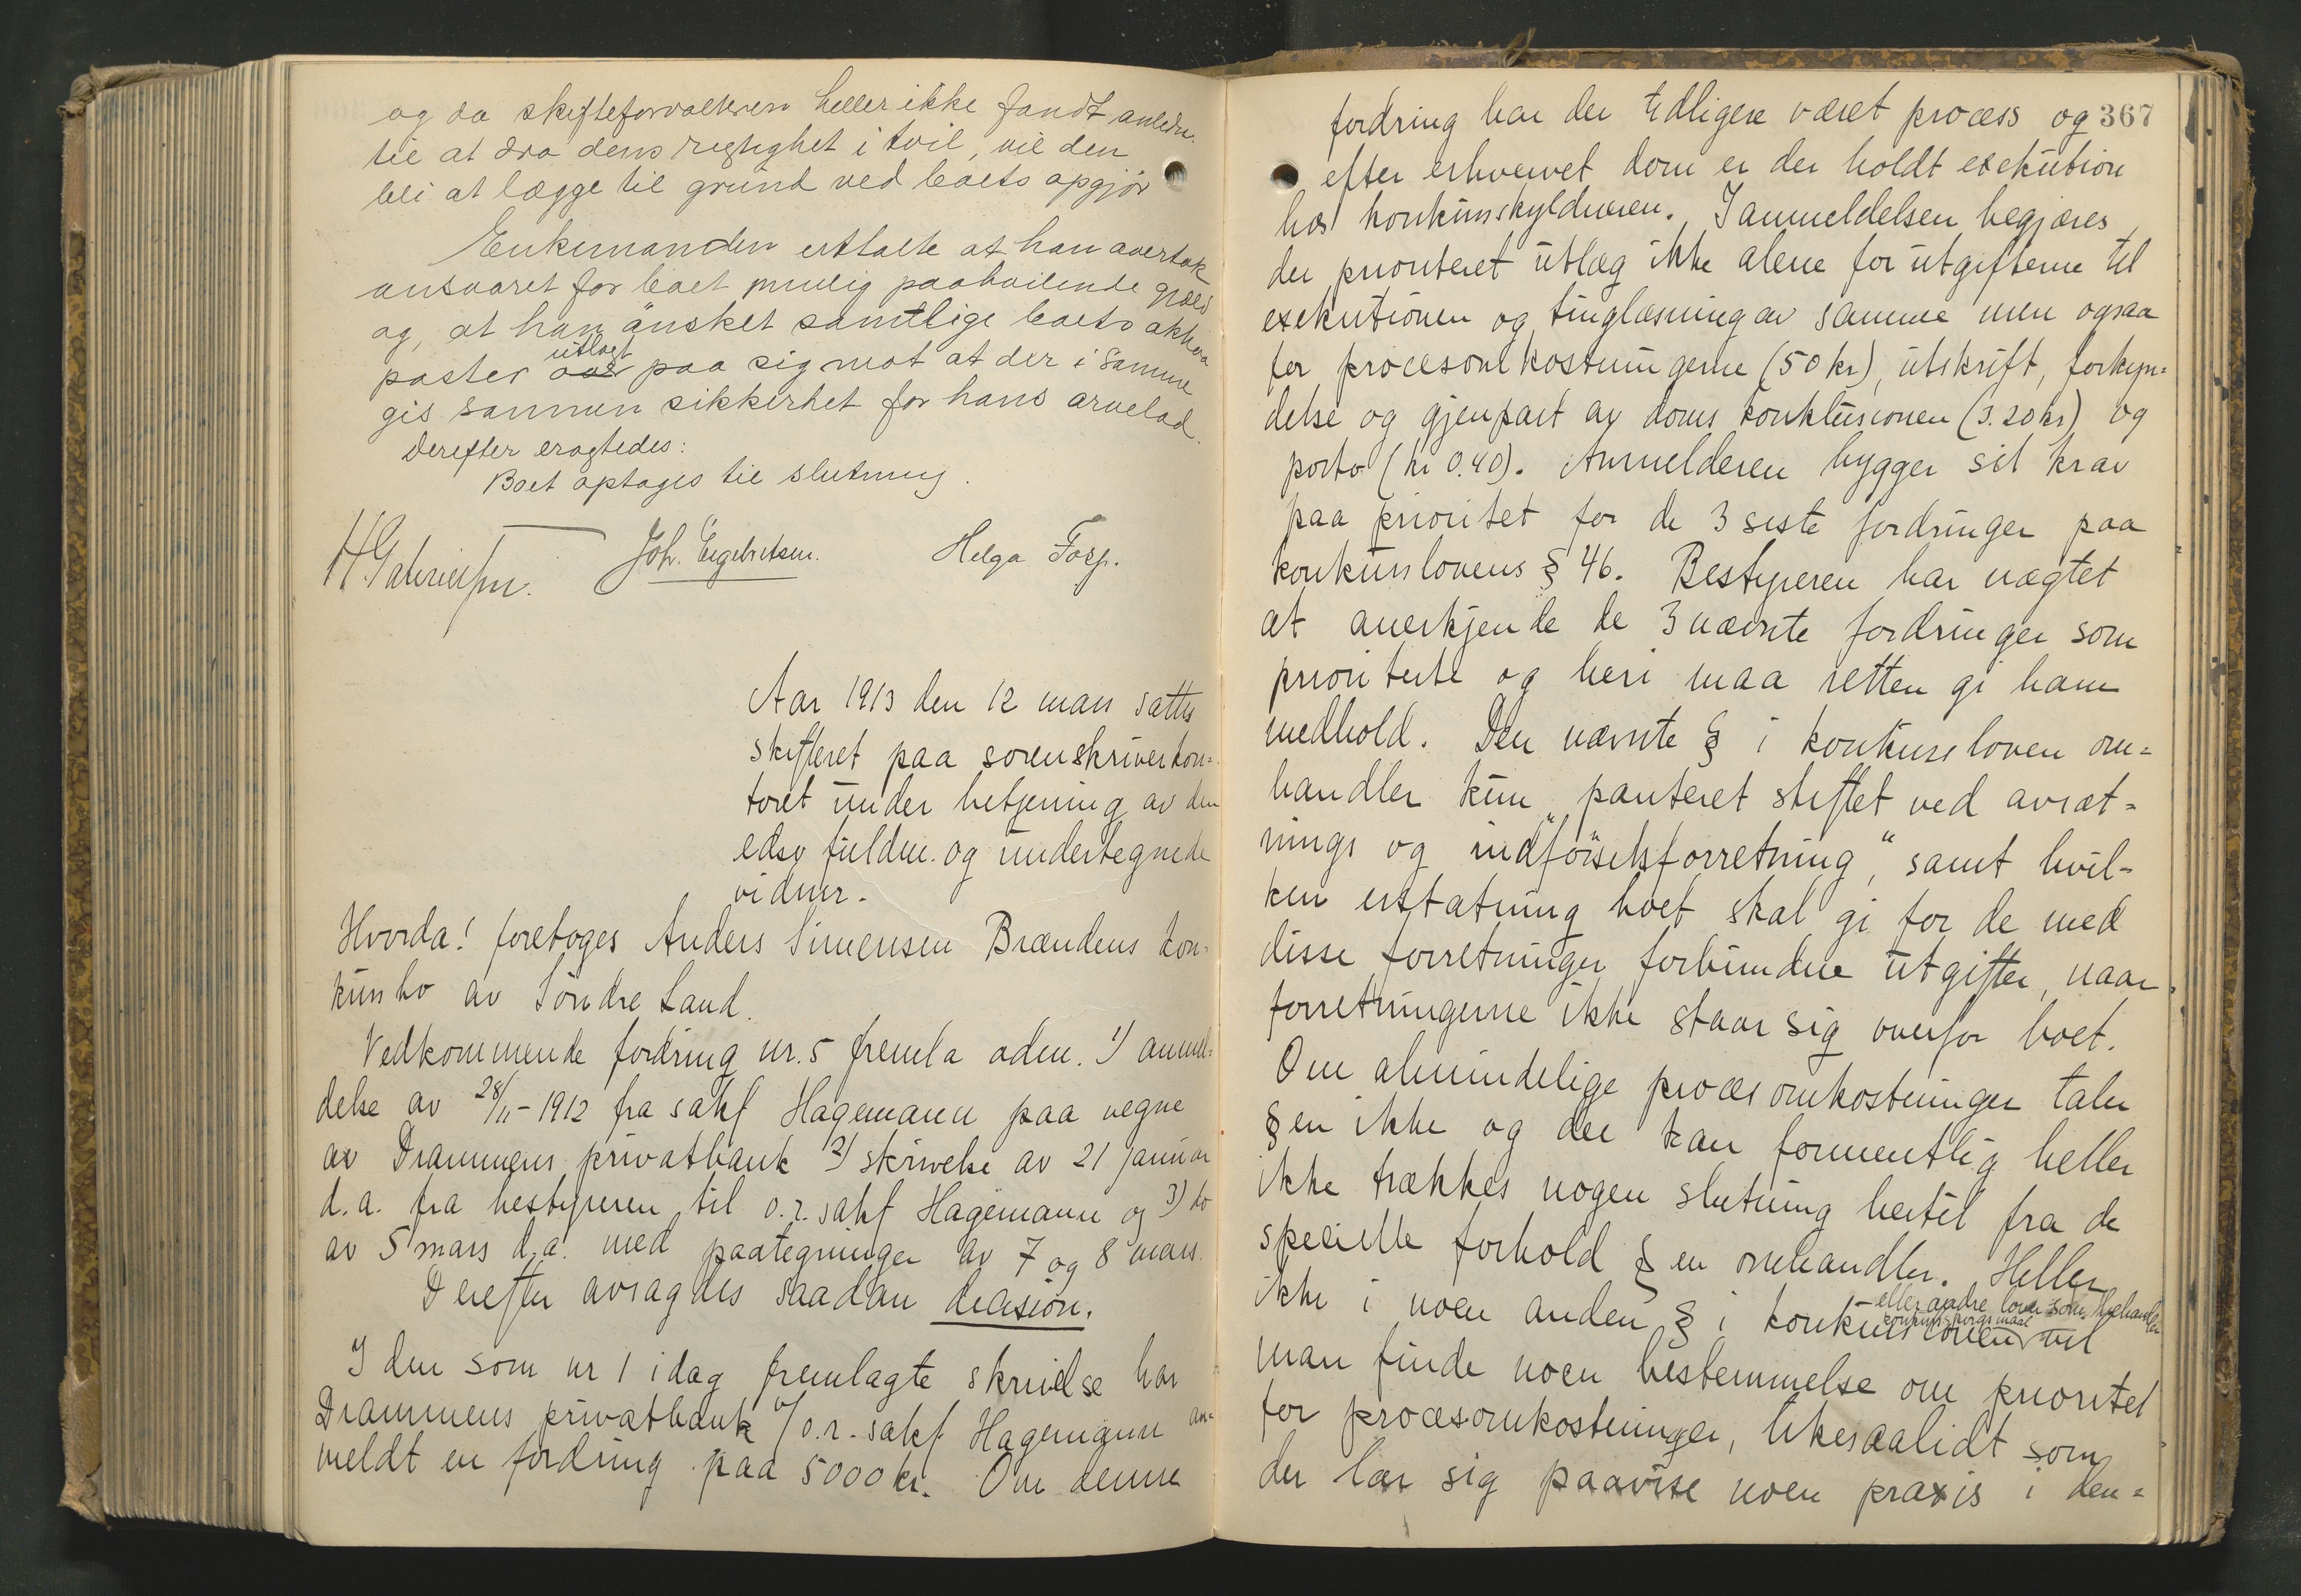 og da skifteforvalteren heller ikke fandt anledn.
til at dra dens rigtighet i tvil, vil den
bli at lægge til grund ved boets opgjør
Enkemanden uttalte at han overtok
ansvaret for boet mulig paahvilende gjæld
og, at han ønsket samtlige boets aktiva
utlagt
poster over paa sig mot at der i samme
gis sønnen sikkerhet for hans arvelod.
Derefter eragtedes:
Boet optages til slutning.
H. Gabrielsen. Joh. Engebretsen. Helga Fosp.
Aar 1913 den 12 mars sattes
skifteret paa sorenskriverkon-
toret under betjening av den
edsv fuldm. og undertegnede
vidner.
Hvorda! foretoges Anders Simensen Brændens kon-
kursbo av Søndre Land.
Vedkommende fordring nr. 5 fremla adm. 1) anmel-
delse av 28/11-1912 fra sakf Hagemann paa vegne
av Drammens privatbank 2) skrivelse av 21 januar
d.a. fra bestyreren til o.r.sakf Hagemann og 3) do
av 5 mars d.a. med paategninger av 7 og 8 mars.
Derefter avsagdes saadan decision.
I den som nr 1 idag fremlagte skrivelse har
Drammens privatbank v/ o.r.sakf. Hagemann an-
meldt en fordring paa 5000 kr. Om denne
367
fordring har der tidligere været process og
efter erhvervet dom er der holdt exekution
hos konkursskyldneren. I anmeldelsen begjæres
der prioriteret utlæg ikke alene for utgifterne til
exekutionen og tinglæsning av samme men ogsaa
for procesomkostningerne (50 kr), utskrift, forkyn-
delse og gjenpart av doms konklusionen (3.20 kr) og
porto (kr 0.40). Anmelderen bygger sit krav
paa prioritet for de 3 siste fordringer paa
konkurslovens § 46. Bestyreren har nægtet
at anerkjende de 3 nævnte fordringer som
prioriterte og heri maa retten gi ham
medhold. Den nævnte § i konkursloven om-
handler kun „panteret stiftet ved avsæt-
nings og indførselsforretning“, samt hvil-
ken erstatning boet skal gi for de med
disse forretninger forbundne utgifter, naar
forretningerne ikke staar sig overfor boet.
Om almindelige procesomkostninger taler
§ en ikke og der kan formentlig heller
ikke trækkes nogen slutning hertil fra de
specielle forhold § en omhandler. Heller
eller andre lover som behandler
konkursspørgsmaal
ikke i noen anden § i konkursloven vil
man finde noen bestemmelse om prioritet
for procesomkostninger, likesaalidt som
der lar sig paavise noen praxis i den-